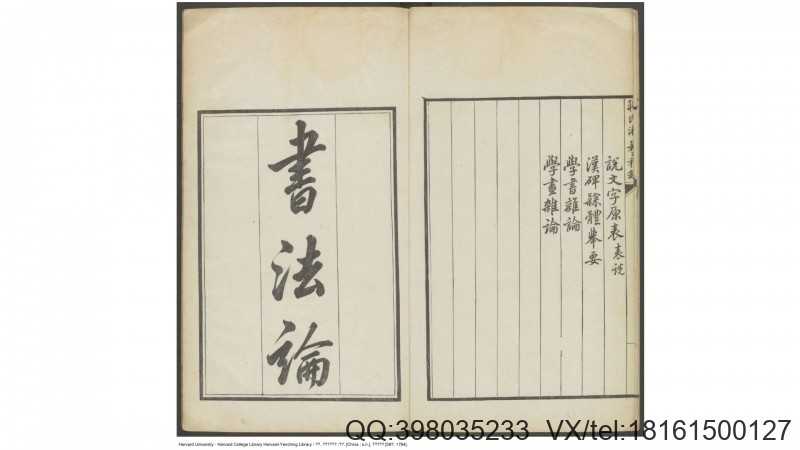 說文字原表表説
漢碑隸體舉要
學書雜論
學畫雜論
書法論
QQ:398035233 VX/tel:18161500127
Harvard University - Harvard College Library Harvard-Yenching Library - ??. ?????? :??. [China : s.n.], ????? [087, 1794].